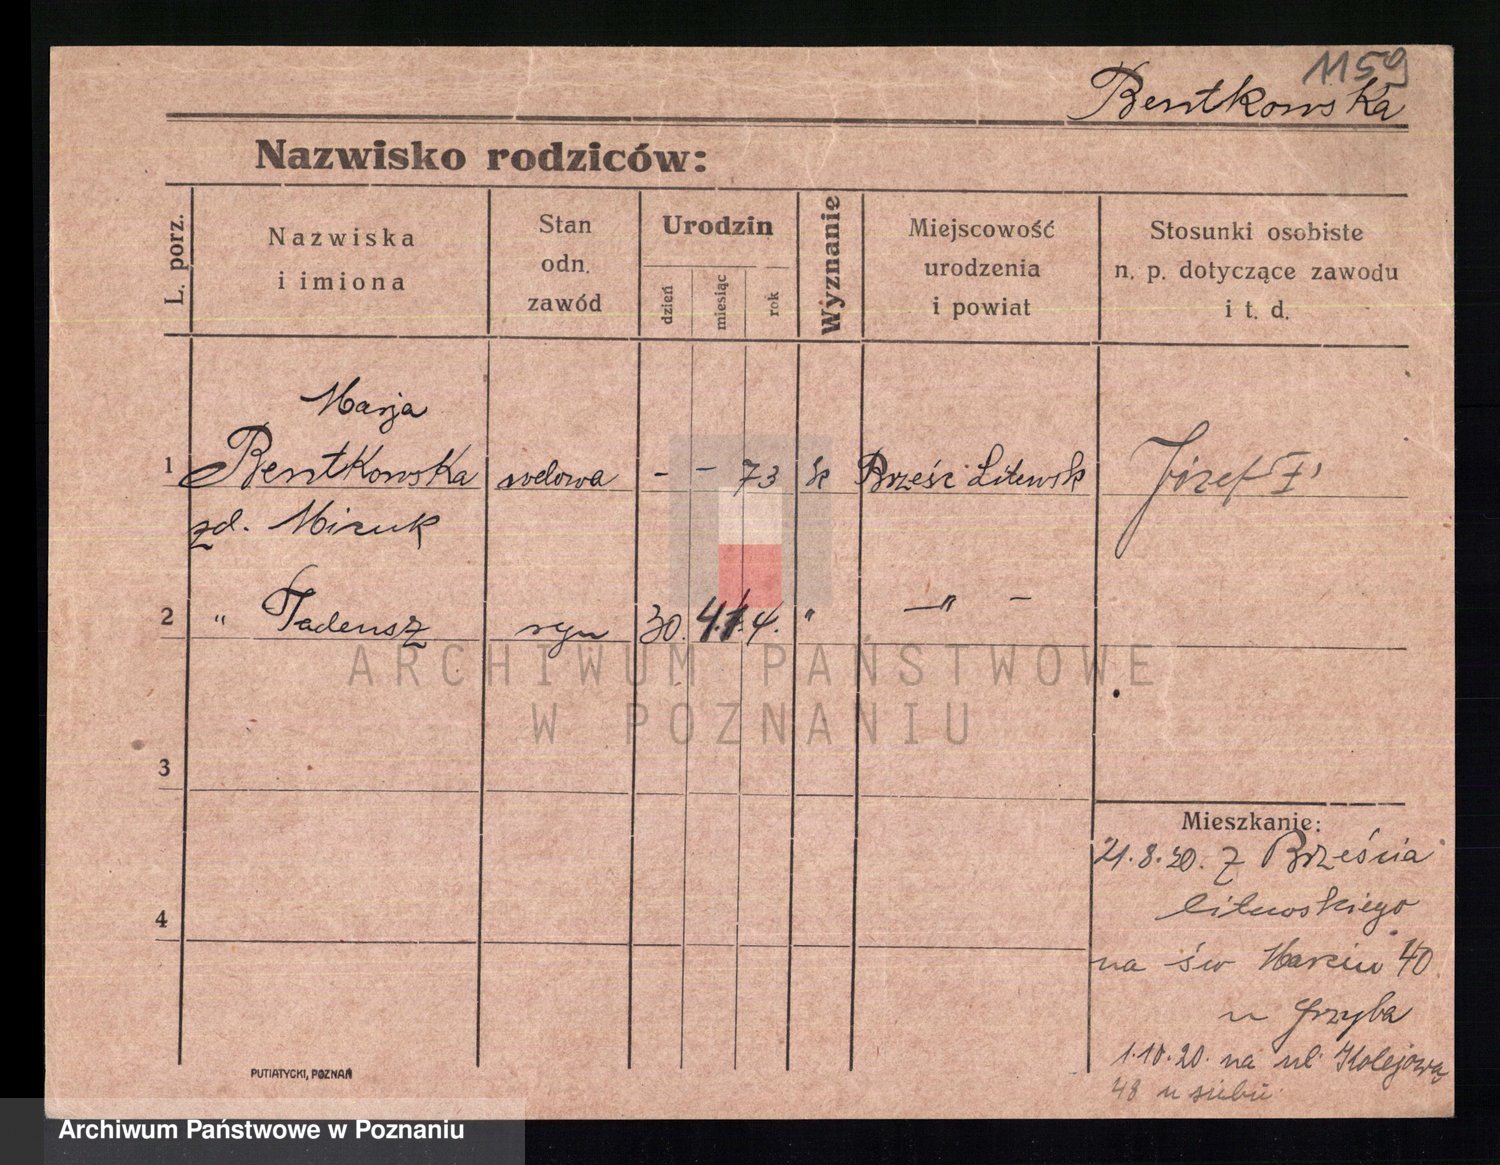 1159
Bentkowska
Nazwisko rodziców:
L. porz.
Nazwiska
i imiona
Stan
odn.
zawód
Urodzin
dzień
miesiąc
rok
Wyznanie
Miejscowość
urodzenia
i powiat
Stosunki osobiste
n. p. dotyczące zawodu
i t. d.
Marja
1 Bentkowska wdowa - - 73 k Brześć Litewsk Józef I
zd. Micuk
2 " Tadeusz syn 30. 4. 4. " —"—
ARCHIWUM PAŃSTWOWE
W POZNANIU
3
4
Mieszkanie:
21.8.20. z Brześcia
litewskiego
na św Marcin 40
u Grzyba
1.10.20. na ul. Kolejową
48 u siebie
PUTIATYCKI, POZNAŃ
Archiwum Państwowe w Poznaniu